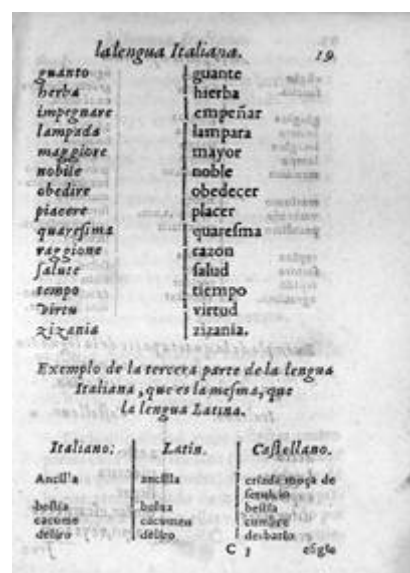 la lengua Italiana. 19.
guanto guante
herba hierba
impegnare empeñar
lampada lampara
maggiore mayor
nobile noble
obedire obedecer
piacere placer
quaresima quaresma
raggione razon
salute salud
tempo tiempo
virtu virtud
zizania zizania.
Exemplo de la tercera parte de la lengua
Italiana, que es la mesma, que
la lengua Latina.
Italiano. Latin. Castellano.
Ancilla ancilla criada moça de
seruicio
bestia bestia bestia
cacume cacumen cumbre
deliro deliro
C 3